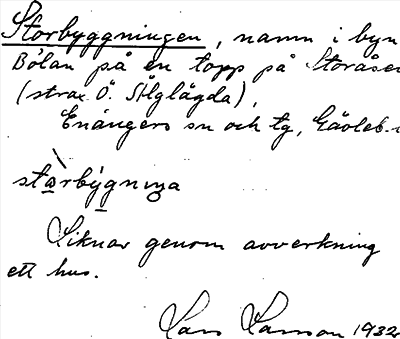 Storbyggningen, namn i byn
Bölan på en topp på Storåsen
(strax Ö. Sölglägda),
Enångers sn och tg, Gävleb.
stärbýgninga
Liknar genom avverkning
ett hus.
Lars Larsson 1932